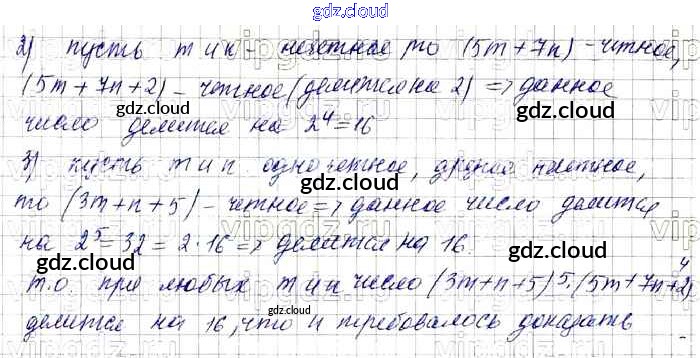 gdz.cloud
2) пусть m и n - нечетное то (5m+7n) - четное,
(5m + 7n + 2) - четное (делится на 2) => данное
число делится на 2^4 = 16
gdz.cloud
gdz.cloud
gdz.cloud
3) пусть m и n одно четное, другое нечетное,
gdz.cloud
то (3m+n+5) - четное => данное число делится
на 2^5 = 32 = 2·16 => делится на 16.
gdz.cloud
gdz.cloud
т.о. при любых m и n число (3m+n+5)^5·(5m+7n+2)^4
gdz.cloud
делится на 16, что и требовалось доказать
gdz.cloud